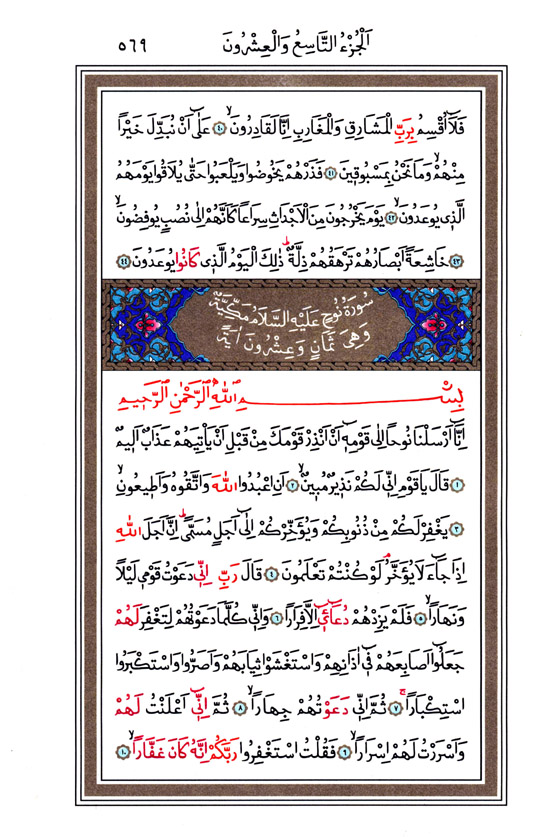 اَلْجُزْءُ التَّاسِعُ وَالْعِشْرُونَ
٥٦٩
فَلَٓا اُقْسِمُ بِرَبِّ الْمَشَارِقِ وَالْمَغَارِبِ اِنَّا لَقَادِرُونَۙ ﴿٤٠﴾ عَلٰٓى اَنْ نُبَدِّلَ خَيْرًا
مِنْهُمْۙ وَمَا نَحْنُ بِمَسْبُوقٖينَ ﴿٤١﴾ فَذَرْهُمْ يَخُوضُوا وَيَلْعَبُوا حَتّٰى يُلَاقُوا يَوْمَهُمُ
الَّذٖي يُوعَدُونَۙ ﴿٤٢﴾ يَوْمَ يَخْرُجُونَ مِنَ الْاَجْدَاثِ سِرَاعًا كَاَنَّهُمْ اِلٰى نُصُبٍ يُوفِضُونَۙ
﴿٤٣﴾ خَاشِعَةً اَبْصَارُهُمْ تَرْهَقُهُمْ ذِلَّةٌۜ ذٰلِكَ الْيَوْمُ الَّذٖي كَانُوا يُوعَدُونَ ﴿٤٤﴾
سُورَةُ نُوحٍ عَلَيْهِ السَّلَامُ مَكِّيَّةٌ
وَهِيَ ثَمَانٍ وَعِشْرُونَ اٰيَةً
بِسْمِ اللّٰهِ الرَّحْمٰنِ الرَّحٖيمِ
اِنَّٓا اَرْسَلْنَا نُوحًا اِلٰى قَوْمِهٖٓ اَنْ اَنْذِرْ قَوْمَكَ مِنْ قَبْلِ اَنْ يَأْتِيَهُمْ عَذَابٌ اَلٖيمٌ
﴿١﴾ قَالَ يَا قَوْمِ اِنّٖي لَكُمْ نَذٖيرٌ مُبٖينٌۙ ﴿٢﴾ اَنِ اعْبُدُوا اللّٰهَ وَاتَّقُوهُ وَاَطٖيعُونِۙ
﴿٣﴾ يَغْفِرْ لَكُمْ مِنْ ذُنُوبِكُمْ وَيُؤَخِّرْكُمْ اِلٰٓى اَجَلٍ مُسَمًّىۜ اِنَّ اَجَلَ اللّٰهِ
اِذَا جَٓاءَ لَا يُؤَخَّرُۢ لَوْ كُنْتُمْ تَعْلَمُونَ ﴿٤﴾ قَالَ رَبِّ اِنّٖي دَعَوْتُ قَوْمٖي لَيْلًا
وَنَهَارًاۙ ﴿٥﴾ فَلَمْ يَزِدْهُمْ دُعَٓائٖٓي اِلَّا فِرَارًا ﴿٦﴾ وَاِنّٖي كُلَّمَا دَعَوْتُهُمْ لِتَغْفِرَ لَهُمْ
جَعَلُٓوا اَصَابِعَهُمْ فٖٓي اٰذَانِهِمْ وَاسْتَغْشَوْا ثِيَابَهُمْ وَاَصَرُّوا وَاسْتَكْبَرُوا
اسْتِكْبَارًاۚ ﴿٧﴾ ثُمَّ اِنّٖي دَعَوْتُهُمْ جِهَارًاۙ ﴿٨﴾ ثُمَّ اِنّٖٓي اَعْلَنْتُ لَهُمْ
وَاَسْرَرْتُ لَهُمْ اِسْرَارًاۙ ﴿٩﴾ فَقُلْتُ اسْتَغْفِرُوا رَبَّكُمْ اِنَّهُ كَانَ غَفَّارًاۙ ﴿١٠﴾